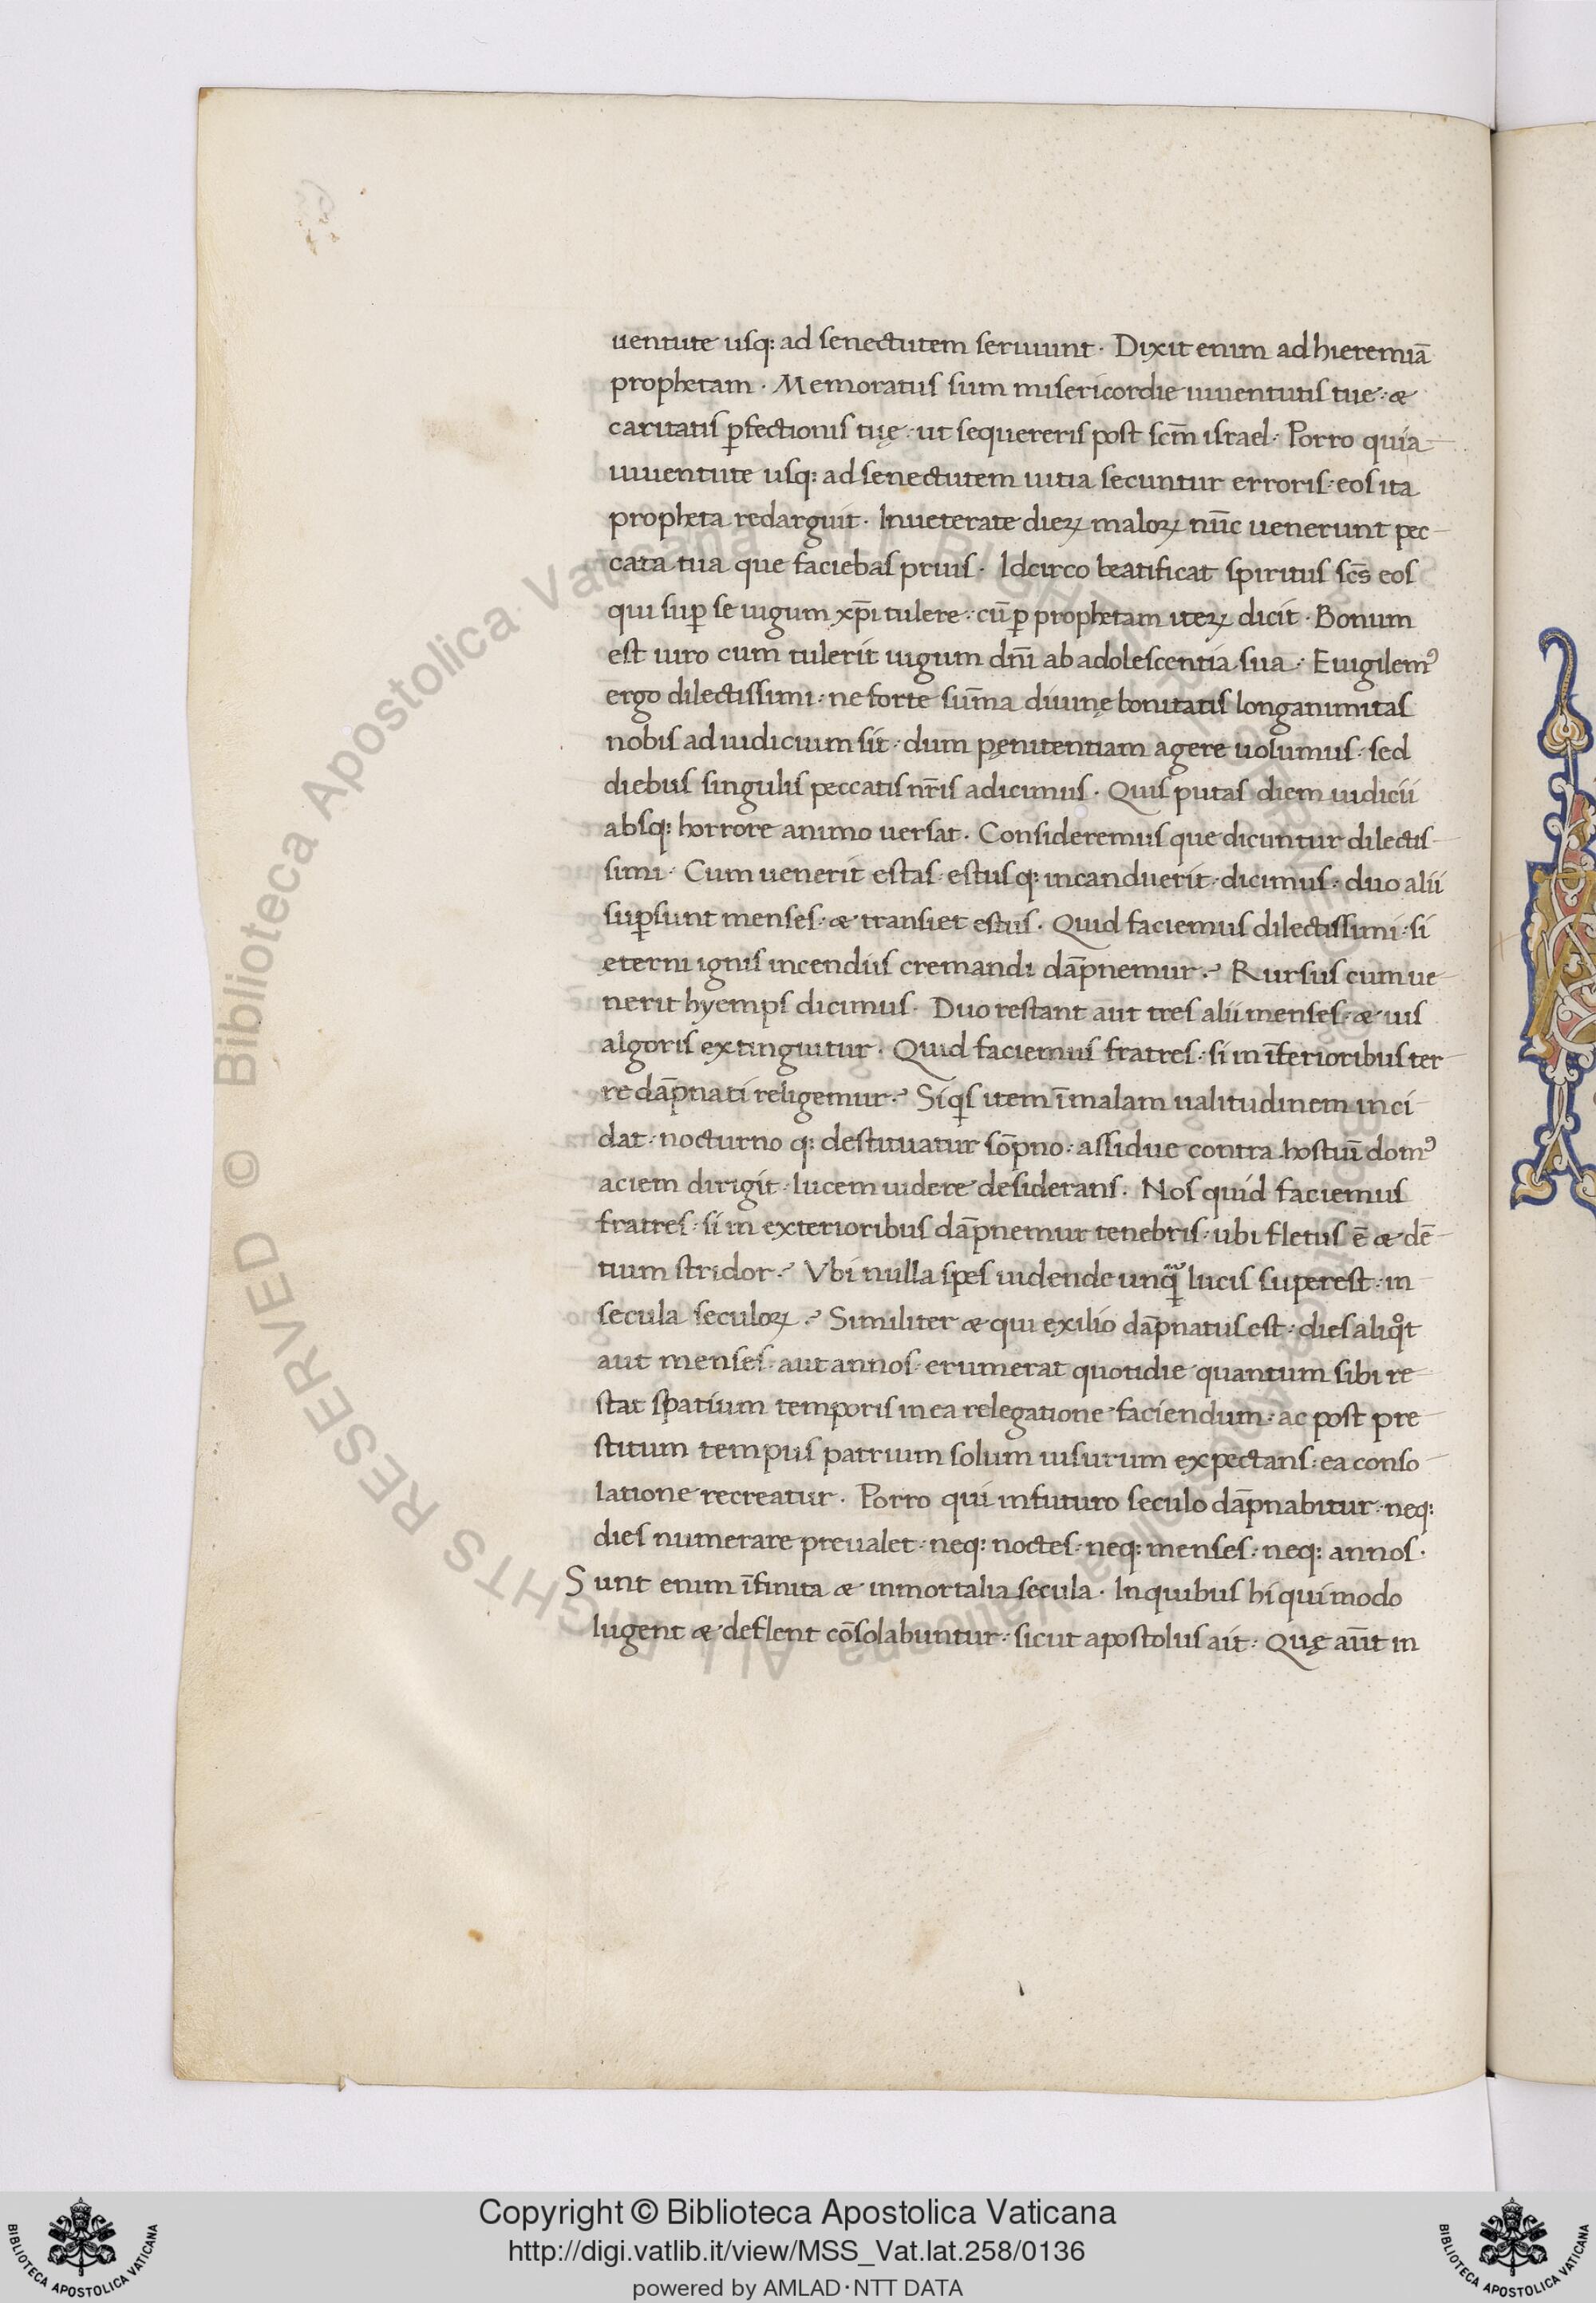 uentute usq: ad senectutem seruiunt · Dixit enim ad hieremiā
prophetam · Memoratus sum misericordie iuuentutis tue : &
caritatis ꝑfectionis tuę : ut sequereris post scm̄ israel · Porro quia
iuuentute usq: ad senectutem uitia secuntur erroris : eos ita
propheta redarguit · Inueterate dieꝝ maloꝝ nūc uenerunt pec-
cata tua que faciebas prius · Idcirco beatificat spiritus scs̄ eos
qui suꝑ se iugum xp̄i tulere : cū ꝑ prophetam iteꝝ dicit · Bonum
est uiro cum tulerit iugum dn̄i ab adolescentia sua : Euigilemꝰ
ergo dilectissimi : ne forte sum̄a diuinę bonitatis longanimitas
nobis ad iudicium sit : dum pęnitentiam agere uolumus : sed
diebus singulis peccatis nr̄is adicimus · Quis putas diem iudicii
absq: horrore animo uersat · Consideremus que dicuntur dilectis-
simi · Cum uenerit estas : estusq: incanduerit : dicimus : duo alii
suꝑsunt menses : & transiet estus · Quid faciemus dilectissimi : si
eterni ignis incendiis cremandi dāpnemur ·? Rursus cum ue-
nerit hyemps dicimus · Duo restant aut tres alii menses : & uis
algoris extinguitur · Quid faciemus fratres : si in īferioribus ter-
re dāpnati religemur ·? Siqs item ī malam ualitudinem inci-
dat : nocturno q: destituatur sōpno : assidue contra hostiū domꝰ
aciem dirigit : lucem uidere desiderans · Nos quid faciemus
fratres : si in exterioribus dāpnemur tenebris : ubi fletus ē & dē-
tium stridor ·? Vbi nulla spes uidende unꝗᵃ lucis superest : in
secula seculoꝝ ·? Similiter & qui exilio dāpnatus est : dies aliqͦt
aut menses : aut annos : erumerat quotidie quantum sibi re-
stat spatium temporis in ea relegatione faciendum : ac post pre-
stitum tempus patrium solum uisurum expectans : ea conso-
latione recreatur · Porro qui in futuro seculo dāpnabitur : neq:
dies numerare preualet : neq: noctes : neq: menses : neq: annos ·
Sunt enim īfinita & inmortalia secula · In quibus hi qui modo
lugent & deflent cōsolabuntur : sicut apostolus ait : Quę aūt in
© Biblioteca Apostolica Vaticana ALL RIGHTS RESERVED
Copyright © Biblioteca Apostolica Vaticana
http://digi.vatlib.it/view/MSS_Vat.lat.258/0136
powered by AMLAD·NTT DATA
BIBLIOTECA APOSTOLICA VATICANA
BIBLIOTECA APOSTOLICA VATICANA